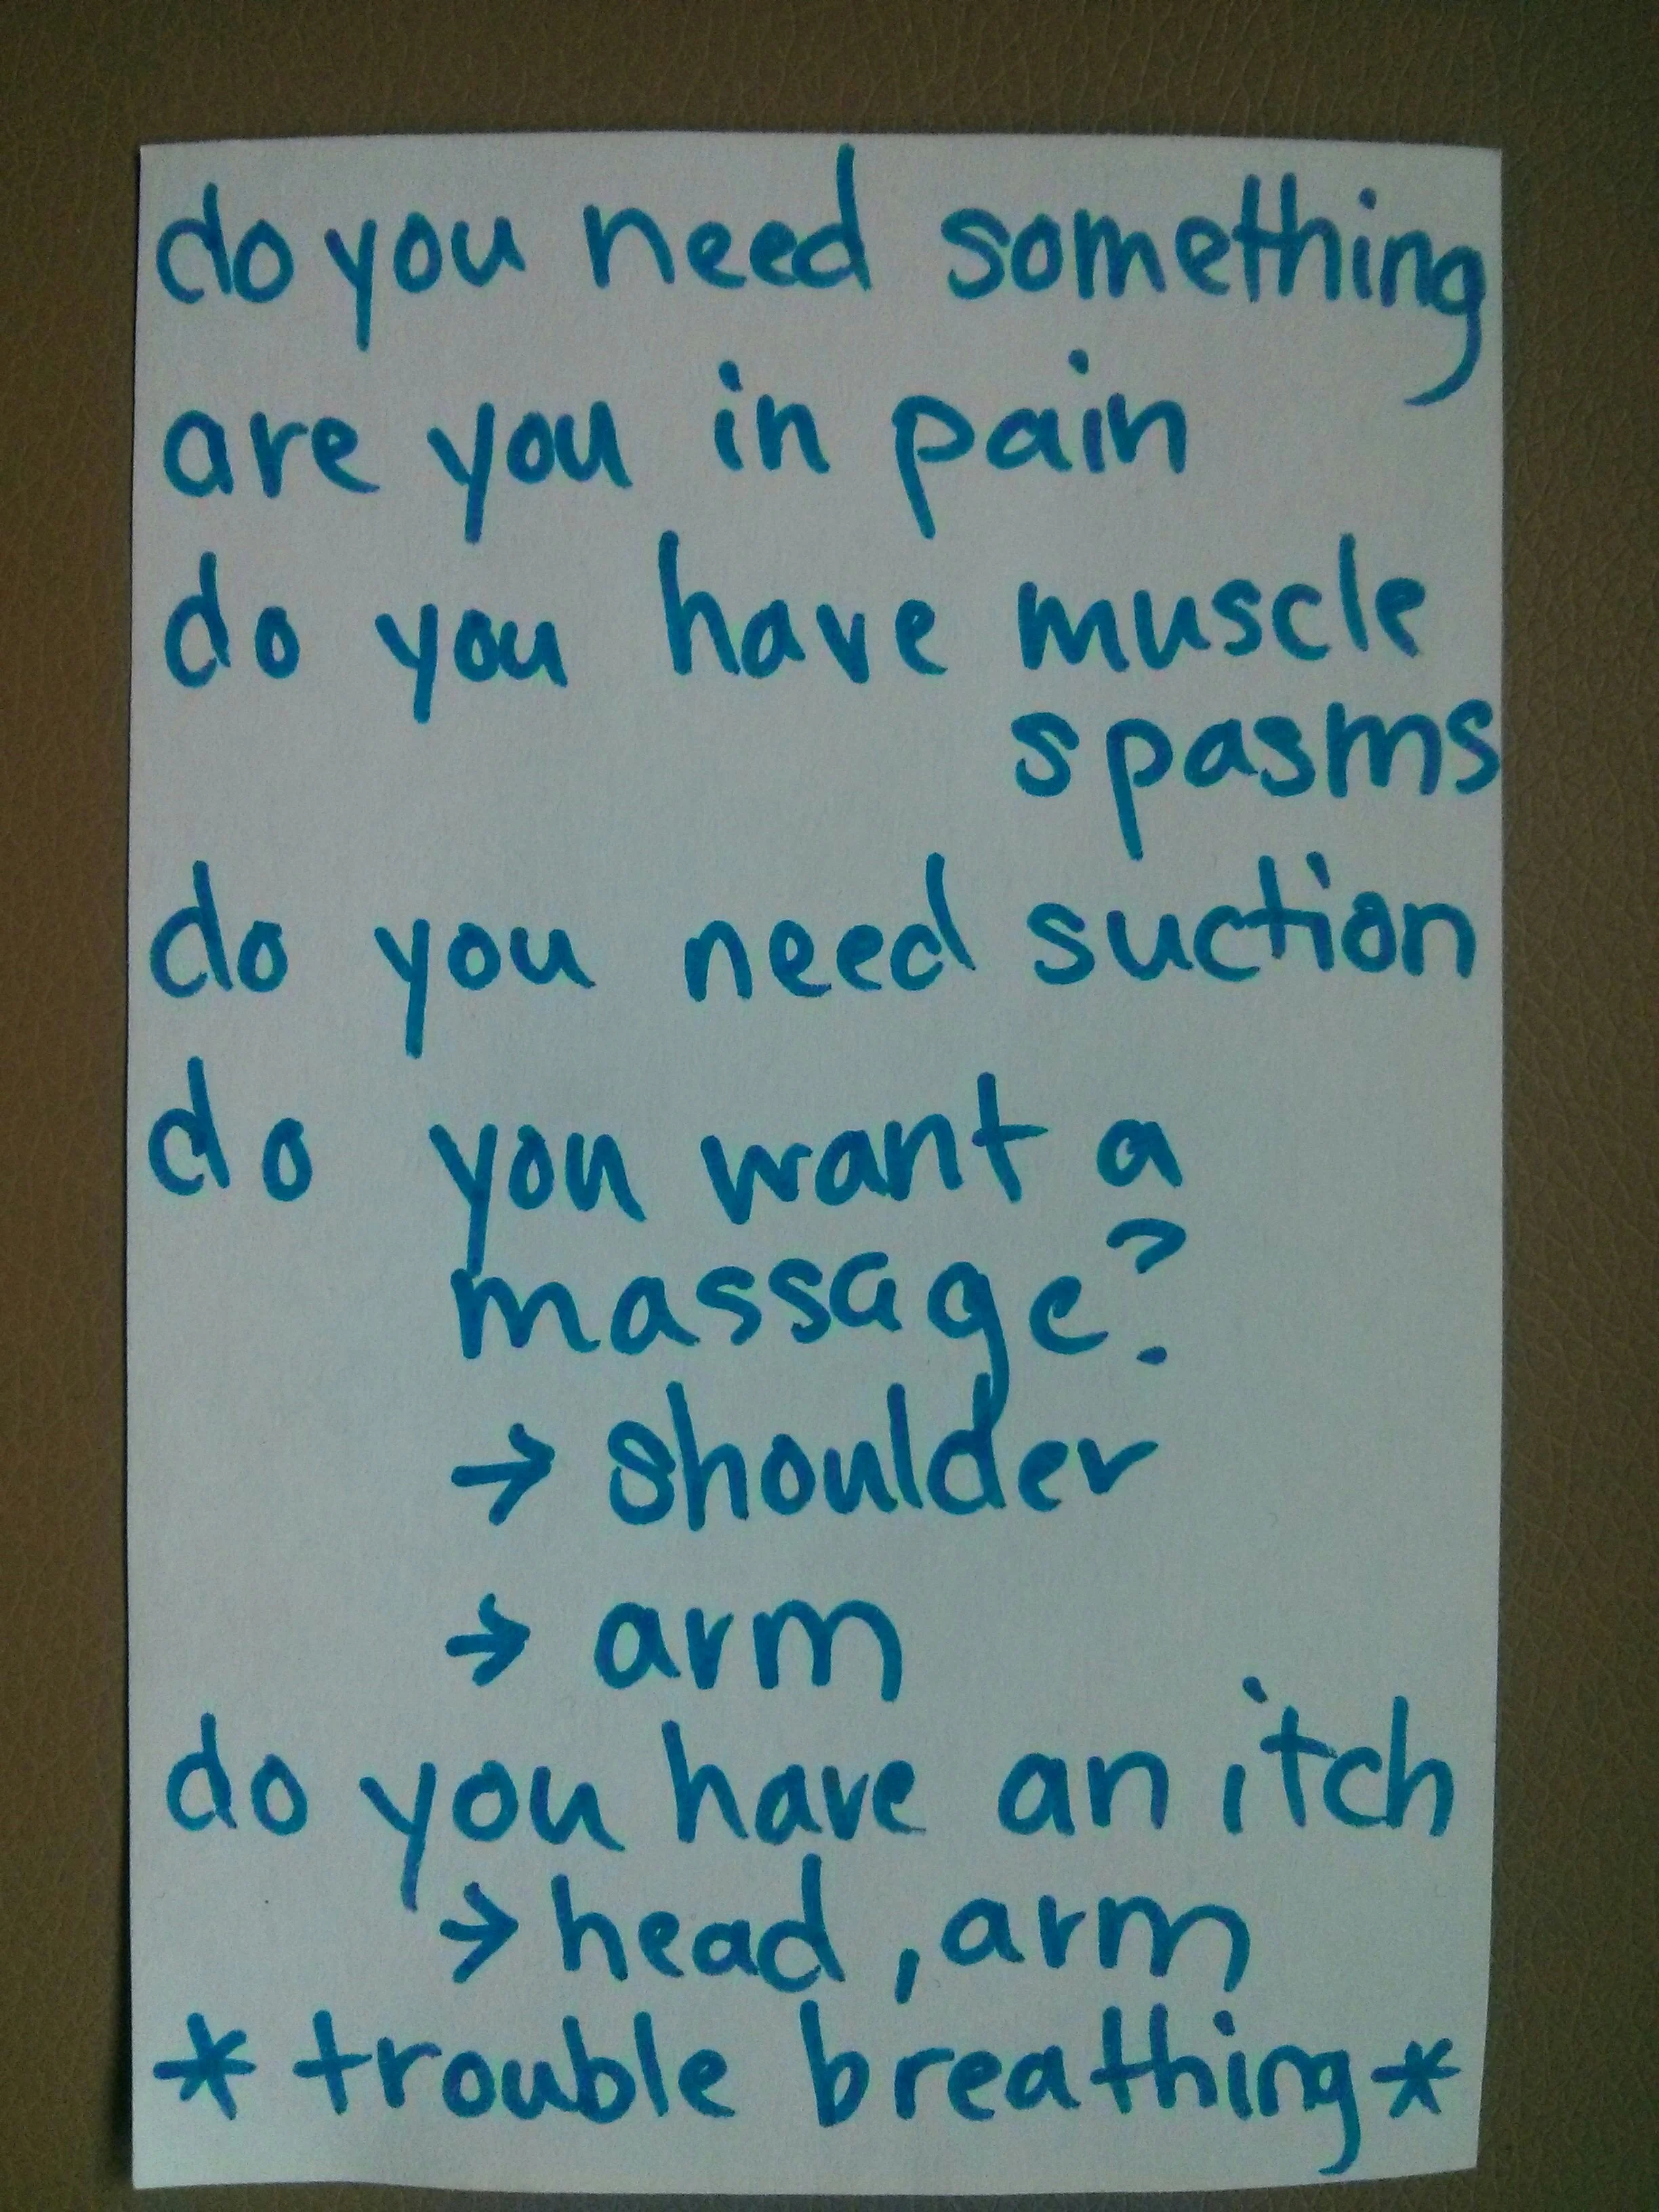 do you need something
are you in pain
do you have muscle
spasms
do you need suction
do you want a
massage?
→ shoulder
→ arm
do you have an itch
→ head, arm
* trouble breathing *